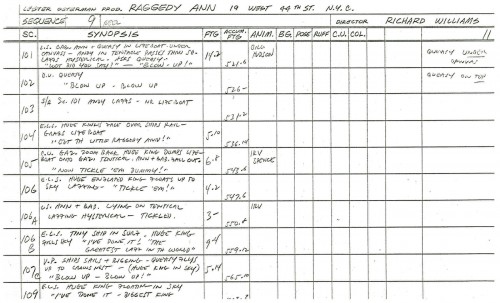 LESTER OSTERMAN PROD. RAGGEDY ANN 19 WEST 44TH ST. N.Y.C.
SEQUENCE 9 DIRECTOR RICHARD WILLIAMS
SC. SYNOPSIS FTG ACCUM. FTG ANIM. B.G. POSE RUFF C.U. COL. 11
101 ANN + QUEASY IN LIFEBOAT UNDER
CANVAS - ANDY IN TENTACLE PASSES THEM
LAFFS HYSTERICAL - ASKS QUEASY -
"WHAT DID YOU SAY?" - "BLOW - UP!" 14.2 521.6 BILL HUDSON QUEASY UNDER CANVAS
102 C.U. QUEASY
"BLOW UP - BLOW UP 526- QUEASY ON TOP
103 SC. 101 ANDY LAFFS - LIFEBOAT
104 E.L.S. HUGE KING'S FACE OVER SHIPS RAIL -
GRABS LIFE BOAT
"GOT TH LITTLE RAGGEDY ANN!" 5.10 536.14
105 BACK HUGE KING DUMPS LIFE-
BOAT ONTO TENTICAL. ANN + FALL OUT
"NOW TICKLE 'EM DUMMY!" 6.8 IRV SPENCE
106 E.L.S. HUGE ENLARGED KING FLOATS UP TO
SKY LAFFING - "TICKLE 'EM!" 4.2 547.6
106A ANN + BAB. LYING ON TENTICAL
LAFFING HYSTERICAL - TICKLED. 3- 550.6 IRV
106B E.L.S. TINY SHIP IN HUGE KING
FILLS SKY "I'VE DONE IT! "THE
GREATEST LAFF IN TH WORLD" 9.4
107C SHIPS SAILS + RIGGING - QUEASY FLYS
UP TO CROWS NEST - (HUGE KING IN SKY)
"BLOW UP - BLOW UP!" 5.14 565.10
E.L.S. HUGE KING FLOATIN IN SKY
"I'VE DONE IT - BIGGEST KING